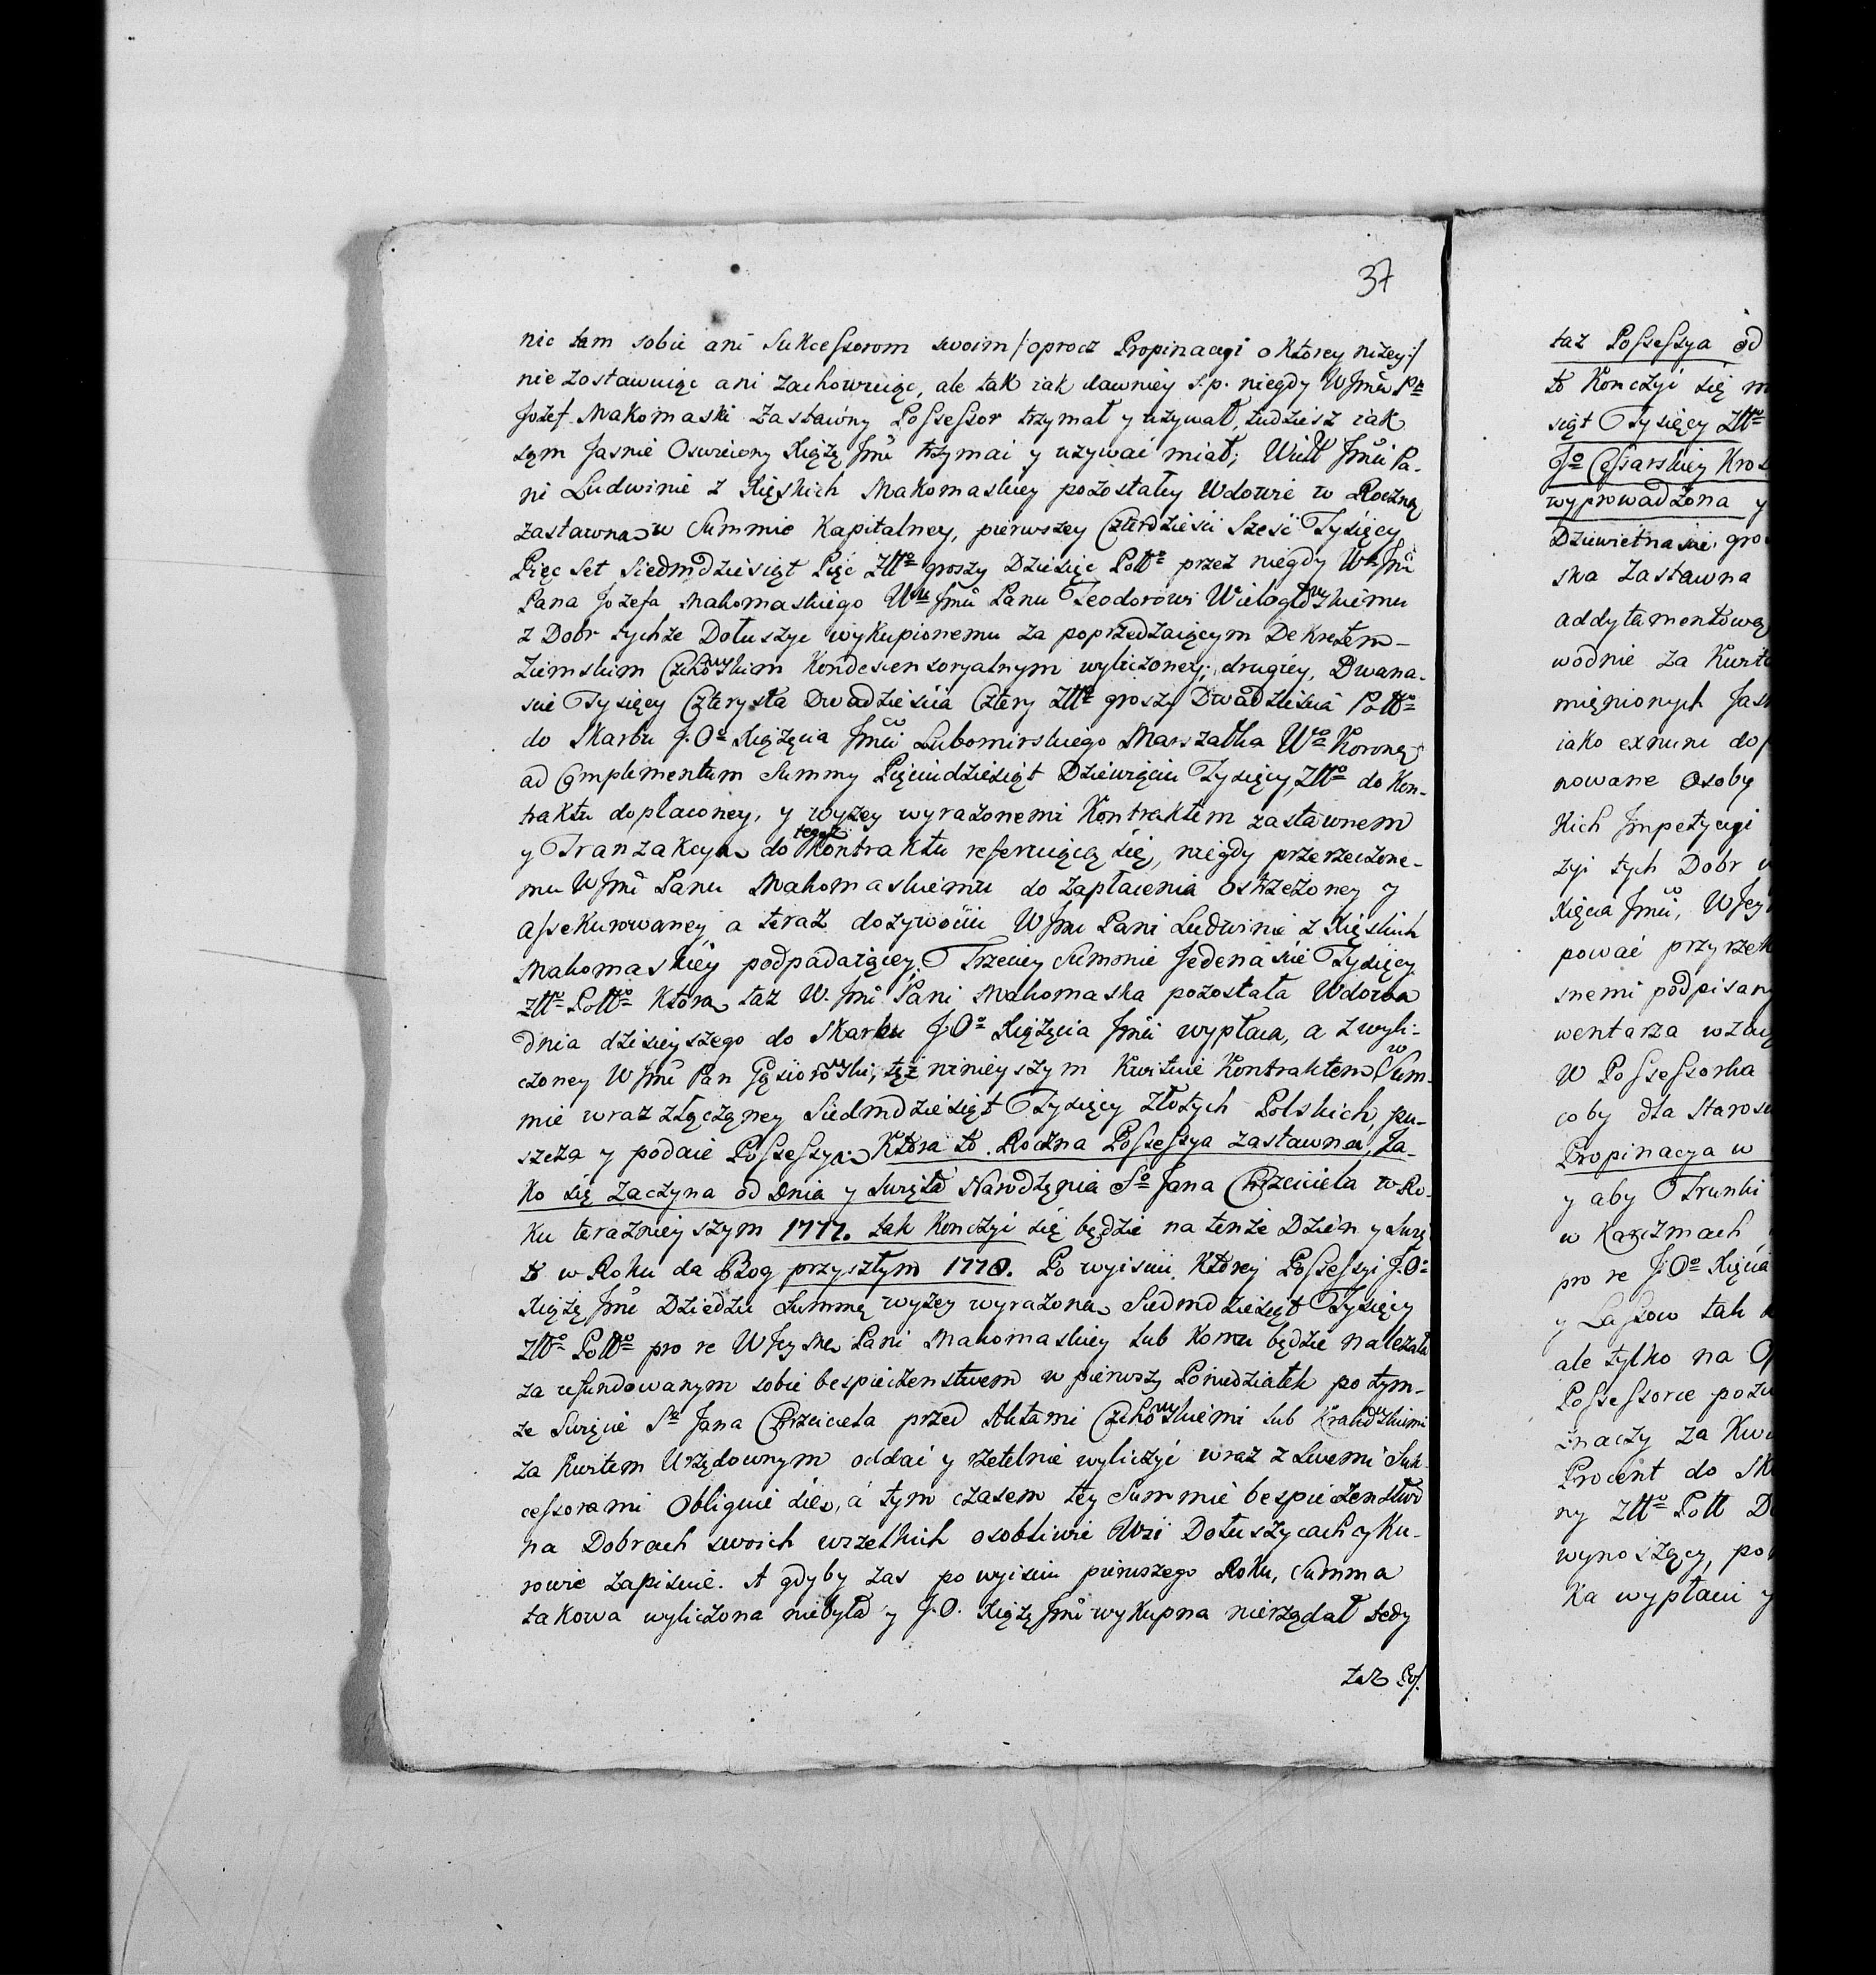 37
nic tam sobie ani Sukcessorom swoim /:oprocz Propinacyi o ktorey niżey:/
nie zostawuiąc ani zachowuiąc, ale tak iak dawniey s.p. niegdy WJmć Pn
Jozef Makomaski zastawny Possessor trzymał y używał, tudziesz iak
sam Jasnie Oswiecony Xiążę Jmć trzymai y używai miał; Wiell Jmci Pa-
ni Ludwinie z Kięskich Makomaskiey pozostałey Wdowie w Roczną
zastawną w Summie Kapitalney, pierwszey Czterdziesci Sześć Tysięcy
Pięc Set Siedmdziesiąt Pięć Złło groszy Dziesięc Pollo przez niegdy Wo Jmci
Pana Jozefa Makomaskiego Wu Jmći Panu Teodorowi Wielogłowskiemu
z Dobr tychże Dołuszyc wykupionemu za poprzedzaiącym Dekretem
Ziemskim Czchowskim Kondescensoryalnym wyliczoney; drugiey, Dwana-
scie Tysięcy Czterysta Dwadziescia Cztery Złło groszy Dwadziescia Pollo
do Skarbu J.Oo Xiążęcia Jmći Lubomirskiego Marszałka Wo Koronnego
ad Complementum Summy Pięciudziesiąt Dziewięciu Tysięcy Złło do Kon-
traktu dopłaconey, y wyżey wyrażonemi Kontraktem zastawnem
y Tranzakcyą do tegoż Kontraktu referuiącą się, niegdy przerzeczone-
mu WJmć Panu Makomaskiemu do zapłacenia ostrzeżoney y
assekurowaney a teraz dożywociu WJmci Pani Ludwinie z Kięskich
Makomaskiey podpadaiącey. Trzeciey Summie Jedenaście Tysięcy
Złło Pollo ktorą taż W. Jmć Pani Makomaska pozostała Wdowa
dnia dzisieyszego do Skarbu J.Oo Xiążęcia Jmći wypłaca, a z wyli-
czoney WJmć Pan Gąsiorowski, też ninieyszym Kwituie Kontraktem w Sum-
mie wraz złączoney Siedmdziesiąt Tysięcy Złotych Polskich, pu-
szcza y podaie Possessyą. Ktora to Roczna Possessya zastawna, Ja-
ko się zaczyna od Dnia y Swięta Narodzenia So Jana Chrzciciela w Ro-
ku teraznieyszym 1777. tak konczyi się będzie na tenże Dzien y Swię
to w Roku da Bog przyszłym 1778. Po wyisciu ktorey Possessyi J.Oo
Xiążę Jmć Dziedzic Summę wyżey wyrażoną Siedmdziesiąt Tysięcy
Złło Pollo pro re WJey Mci Pani Makomaskiey lub komu będzie należała
za refundowanym sobie bespieczenstwem w pierwszy Poniedziałek po tym-
że Swięcie So Jana Chrzciciela przed Aktami Czchowskiemi lub Krakowskiemi
za Kwitem Urzędownym oddai y rzetelnie wyliczyć wraz z Swemi Suk-
cessorami Obliguie się, a tym czasem tey Summie bespieczenstwo
na Dobrach swoich wszelkich osobliwie Wsi Dołuszycach y Ku-
rowie zapisuie. A gdyby zas po wyisciu pierwszego Roku, Summa
takowa wyliczona niebyła y J.O. Xiążę Jmć wykupna nierządał tedy
taż Pos.
taż Possessya od
to Konczyi się
siąt Tysięcy Złło
Jo Cessarskiey
wyprowadzona y
Dziewietnascie
ska Zastawna
addytamentową
wodnie za
mięnionych
iako exnunc
nowane Osoby
kich Impetycyi
zyi tych Dobr
Xięcia Jmći,
pować
snemi
wentarza
W Possessorka
coby dla
Propinacya w
y aby Trunki
w Karczmach
pro re J.Oo Xięcia
y Lassow tak
ale tylko na
Possessorce
znaczy za
Procent do
ny Złło Poll
wynoszący,
ka wypłaci y